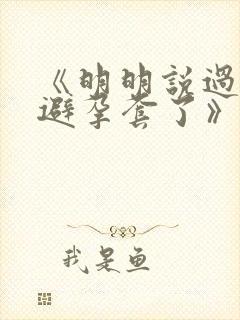 《明明説過
避孕套了》
我是鱼